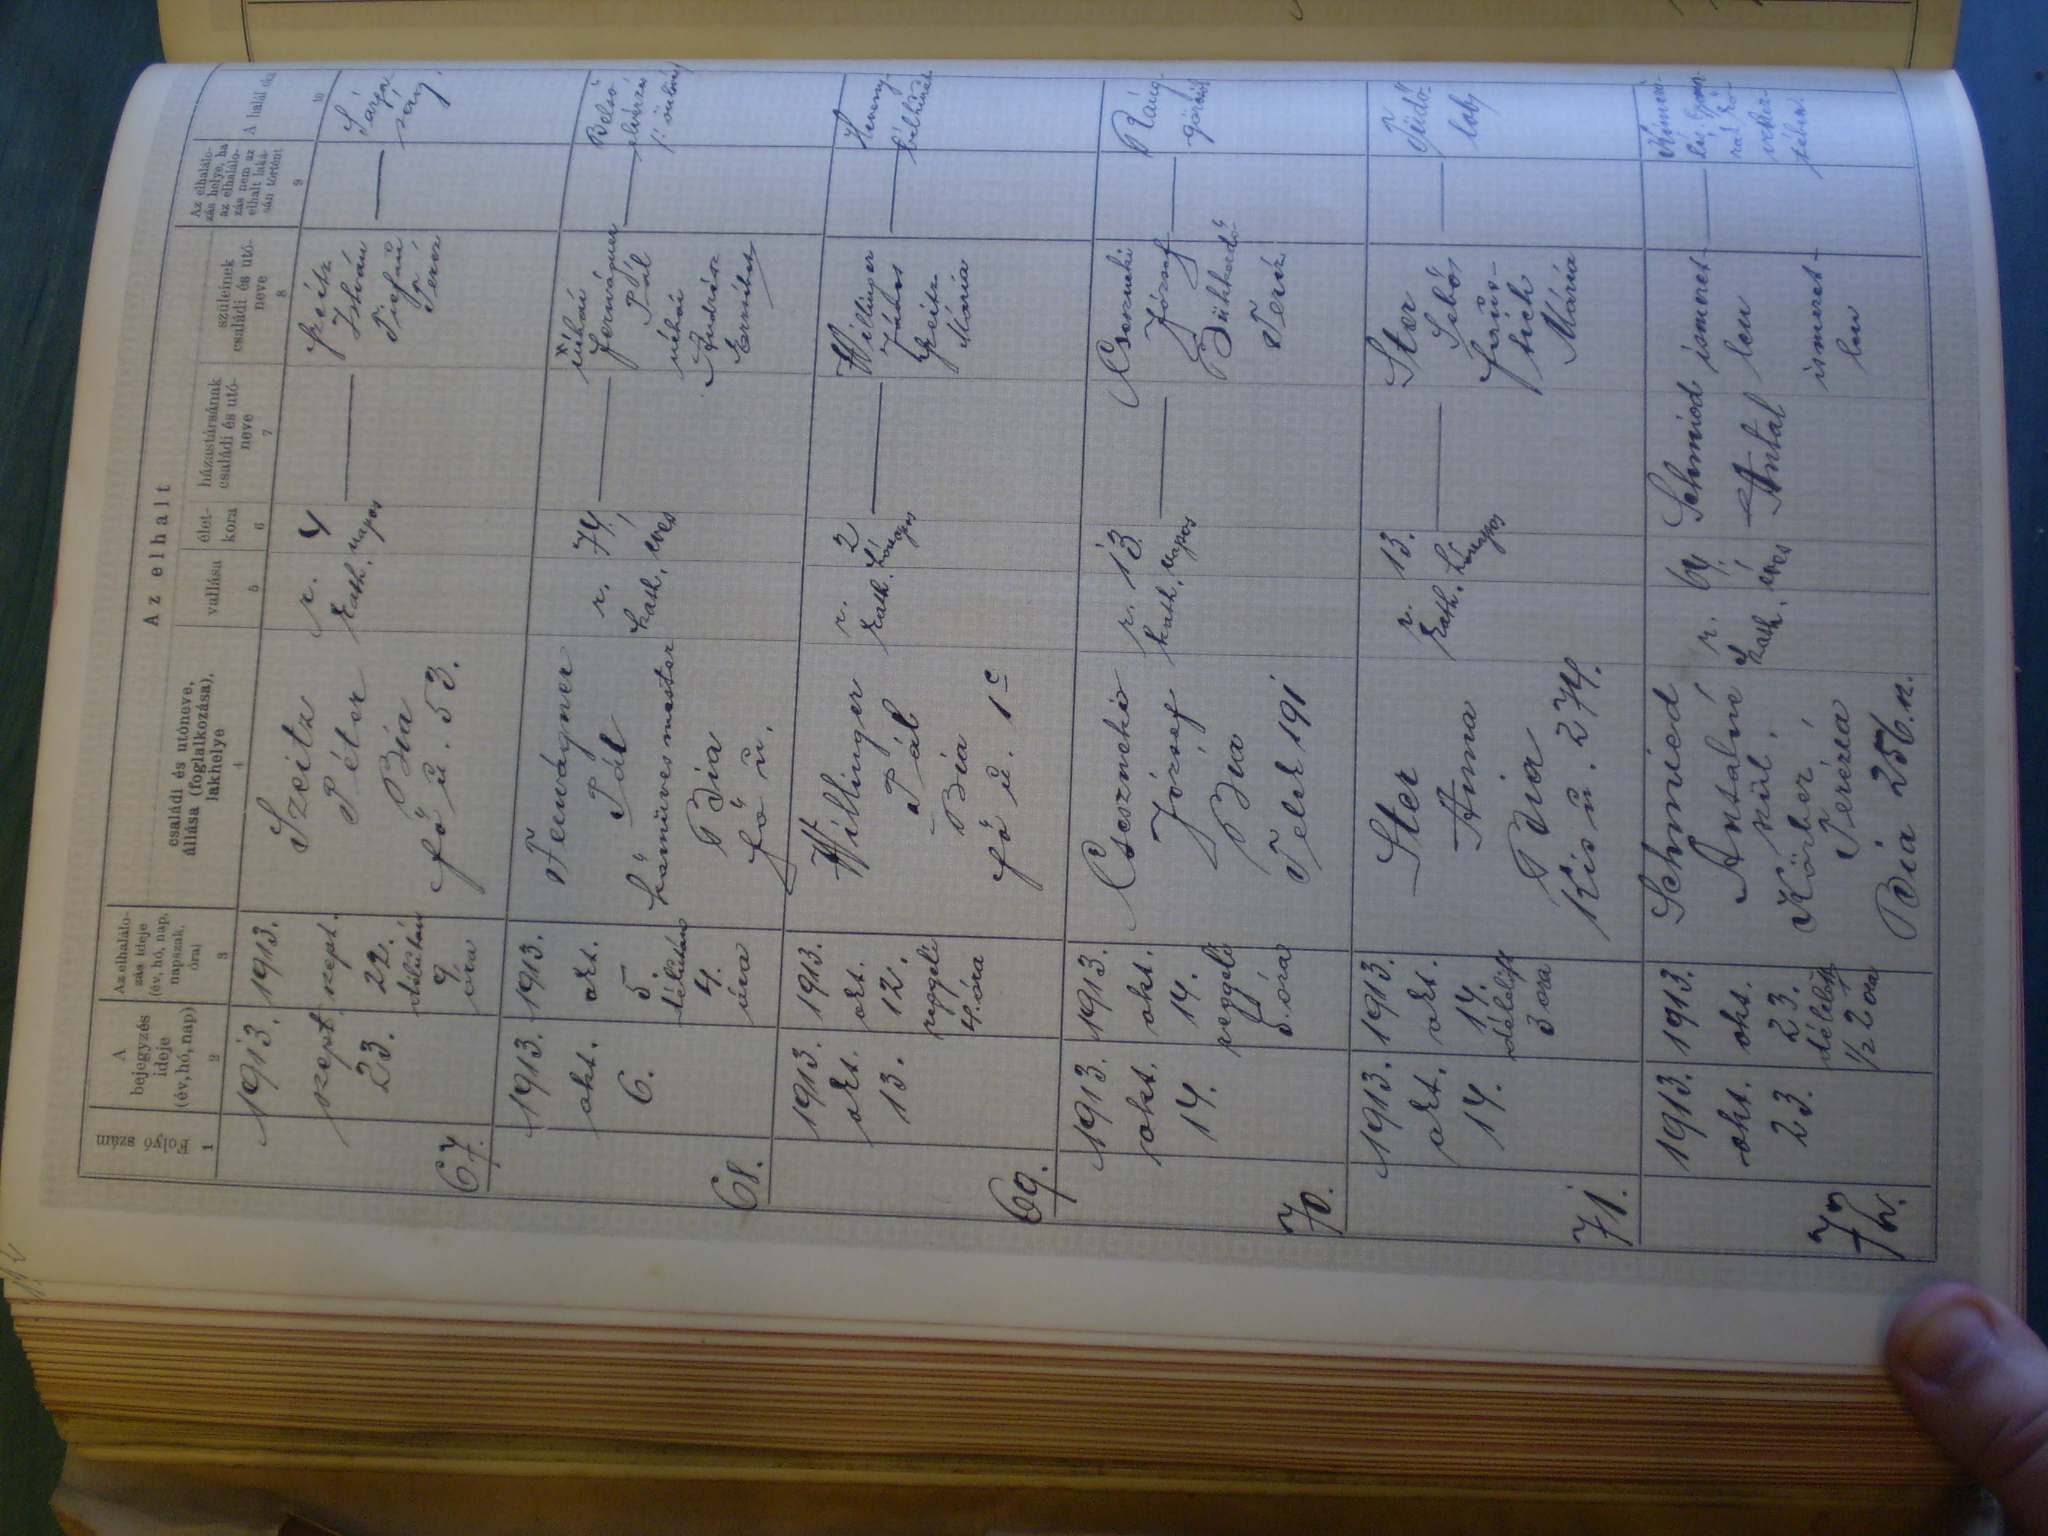 Az elhalt
Folyó szám
A bejegyzés ideje (év, hó, nap)
Az elhalálo-
zás ideje
(év, hó, nap,
napszak,
óra)
családi és utóneve,
állása (foglalkozása),
lakhelye
vallása
élet-
kora
házastársának
családi és utó-
neve
szüleinek
családi és utó-
neve
Az elhalálo-
zás helye, ha
az elhalálo-
zás nem az
elhalt laká-
sán történt
A halál oka
1
2
3
4
5
6
7
8
9
10
67.
1913.
szept.
23.
1913.
szept.
22.
délután
9
óra
Szeitz
Péter
Bia
fő u. 53.
r.
kath.
4
napos
—
Szeitz
István
Teréz
—
Sárga-
ság.
68.
1913.
okt.
6.
1913.
okt.
5
délután
4.
óra
Fenvágner
Pál
kőmüves mester
Bia
fő u.
r.
kath.
74
éves
—
néhai
Fenvágner
Pál
néhai
Erzsébet
—
Belső
elvérzés
69.
1913.
okt.
13.
1913.
okt.
12.
reggeli
4. óra
Willinger
Pál
Bia
fő u. 1c
r.
kath.
2
hónapos
—
Willinger
János
Szeitz
Mária
—
Heveny
bélhurut
70.
1913.
okt.
14.
1913.
okt.
14.
reggeli
5. óra
Cseszneki
József
Bia
Telek 191
r.
kath.
13
napos
—
Cseszneki
József
Bükkerdő
Teréz
—
Ráng-
görcsök
71.
1913.
okt.
14.
1913.
okt.
14.
délelőtt
3 óra
Ster
Anna
Bia
Kis u. 274.
r.
kath.
13.
hónapos
—
Ster
Sebős
Mária
—
Tüdő-
lob
72.
1913.
okt.
23.
1913.
okt.
23.
délelőtt
1/2 2 óra
Schmied
Antalné
szül.
Körber
Terézia
Bia 256. sz.
r.
kath.
64
éves
Schmied
Antal
ismeret-
len
ismeret-
len
—